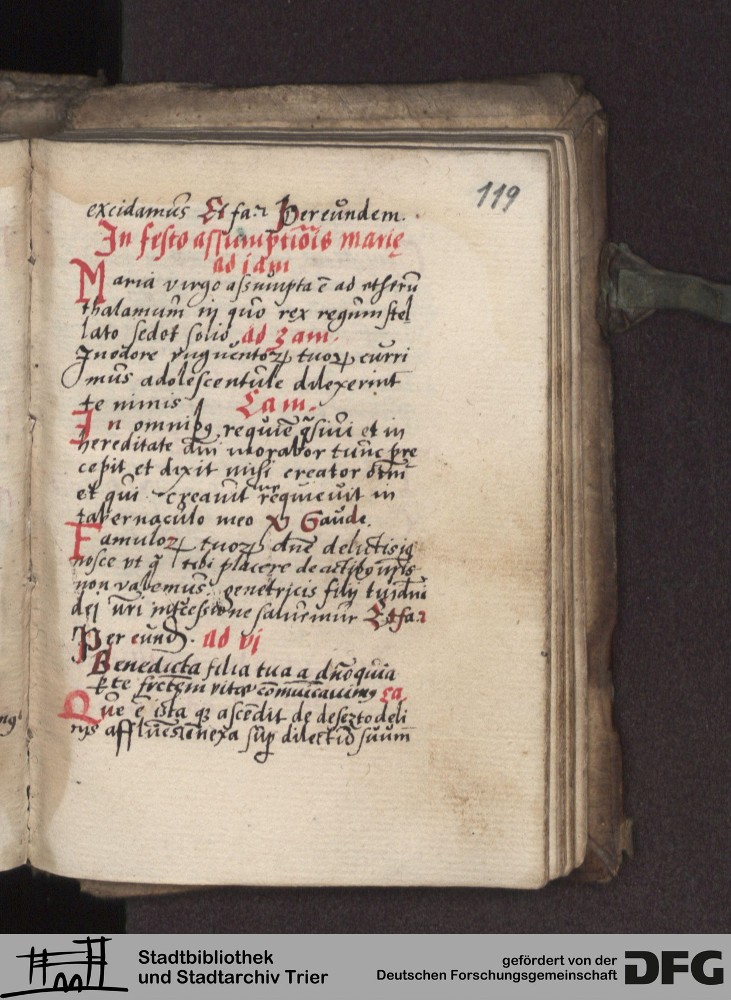 119
excidamus Et fa⁊ Per eundem.
In festo assumptiōis marie
ad iam
Maria virgo assumpta ē ad etherū
thalamum in quo rex regum stel
lato sedet solio ad 3am.
In odore vnguentoꝝ tuoꝝ curri
mus adolescentule dilexerunt
te nimis Ca m.
In omnibꝰ requiē q̄siui et in
hereditate dni morabor tunc pre
cepit et dixit mihi creator om̄
et qui creauit me requieuit in
tabernaculo meo Gaude.
Famuloꝝ tuoꝝ dn̄e delictis ig
nosce vt q̄ tibi placere de actibꝰ nr̄is
non valemus. genetricis filij tui dn̄i
dei nr̄i int̄cessione saluemur Et fa⁊
Per eund. ad vi
Benedicta filia tua a dn̄o quia
p te fructem vite cōmunicauimꝰ ca
Que ē ista q̄ ascēdit de deserto deli
cijs affluēs innixa sup dilectū suum
Stadtbibliothek
und Stadtarchiv Trier
gefördert von der
Deutschen Forschungsgemeinschaft
DFG